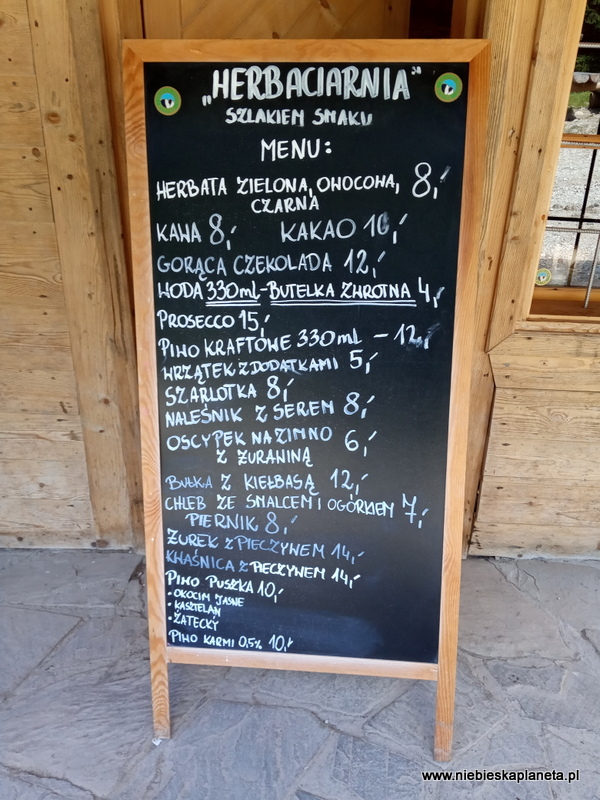 „HERBACIARNIA”
SZLAKIEM SMAKU
MENU:
HERBATA ZIELONA, OWOCOWA, 8,-
CZARNA
KAWA 8,- KAKAO 10,-
GORĄCA CZEKOLADA 12,-
WODA 330ml - BUTELKA ZWROTNA 4,-
PROSECCO 15,-
PIWO KRAFTOWE 330ml - 12,-
WRZĄTEK Z DODATKAMI 5,-
SZARLOTKA 8,-
NALEŚNIK Z SEREM 8,-
OSCYPEK NA ZIMNO 6,-
Z ŻURAWINĄ
BUŁKA Z KIEŁBASĄ 12,-
CHLEB ZE SMALCEM I OGÓRKIEM 7,-
PIERNIK 8,-
ŻUREK Z PIECZYWEM 14,-
KWAŚNICA Z PIECZYWEM 14,-
PIWO PUSZKA 10,-
• OKOCIM JASNE
• KASZTELAN
• ŽATECKÝ
PIWO KARMI 0,5% 10,-
www.niebieskaplaneta.pl